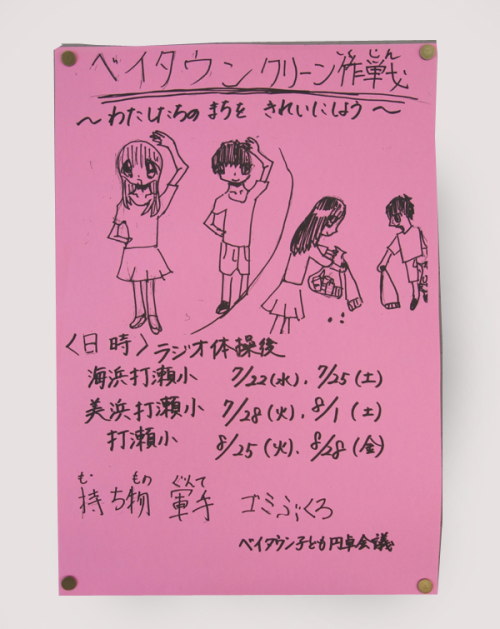 ベイタウンクリーン作戦
さくせん
～わたしたちの まちを きれいにしよう～
〈日時〉ラジオ体操後
海浜打瀬小 7/22(水)、7/25(土)
美浜打瀬小 7/28(火)、8/1(土)
打瀬小 8/25(火)、8/28(金)
も もの ぐんて
持ち物 軍手 ゴミぶくろ
ベイタウン子ども円卓会議